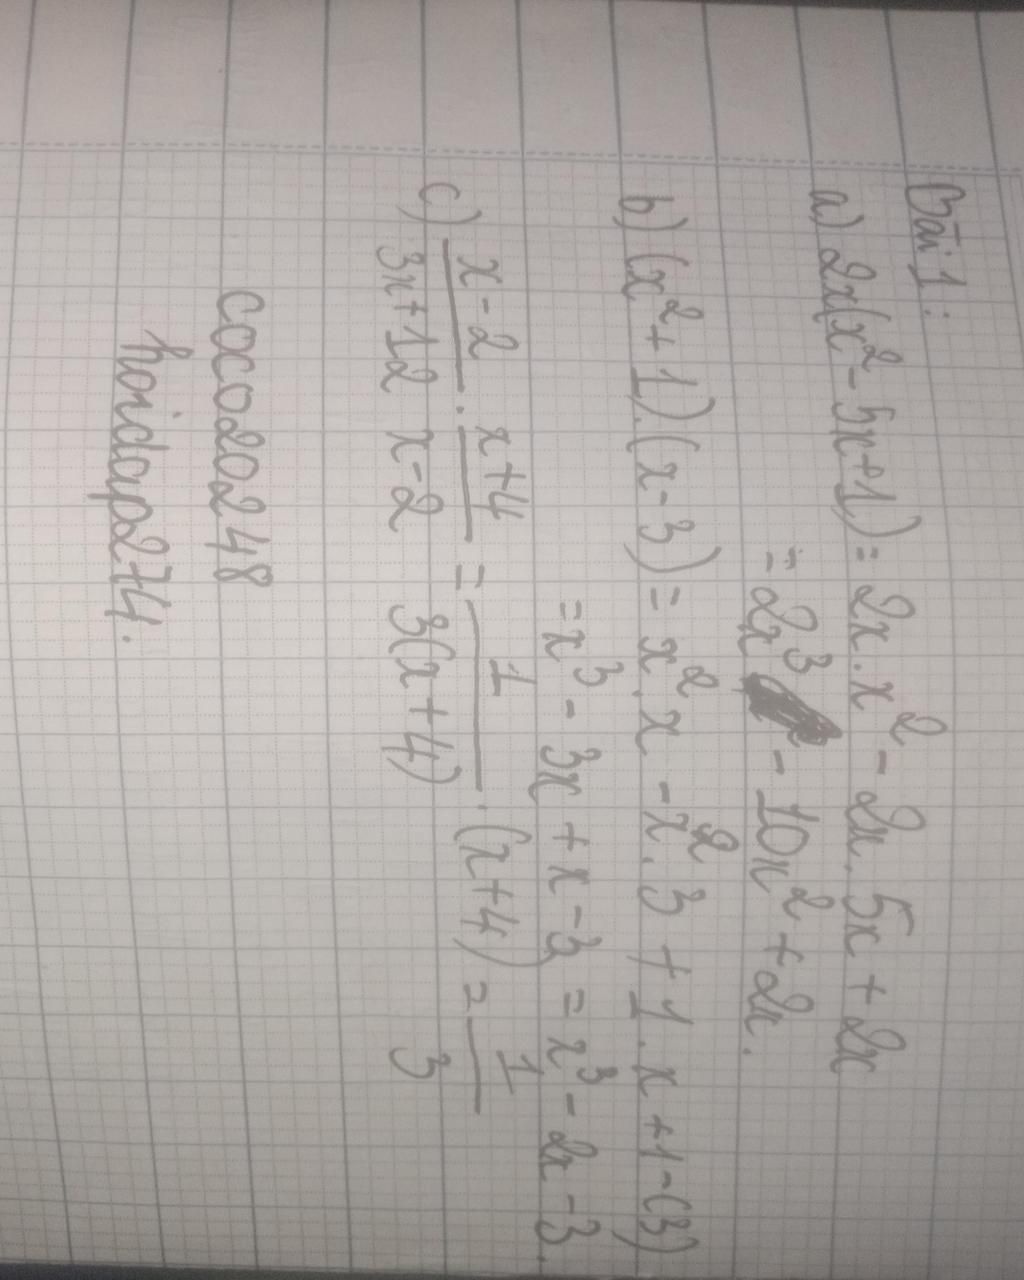 Bài 1:
a) 2x(x² - 5x+1) = 2x.x² - 2x.5x + 2x
= 2x³ - 10x² + 2x.
b) (x² + 1).(x - 3) = x².x - x².3 + 1.x + 1-(3)
= x³ - 3x + x - 3 = x³ - 2x - 3.
c) \frac{x-2}{3x+12} . \frac{x+4}{x-2} = \frac{1}{3(x+4)} . (x+4) = \frac{1}{3}
coco20248
hoidap274.